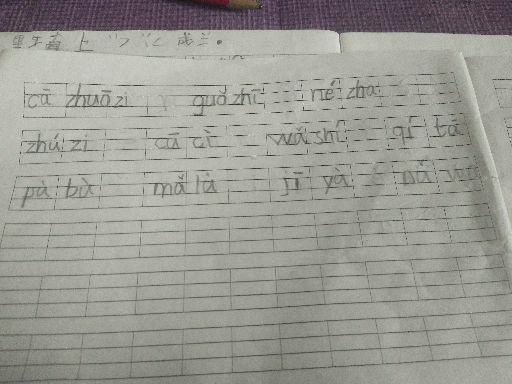 cā zhuō zi guǒ zhī né zha
zhú zi cā cā wǎ shí qí tā
pà bà mǎ lù jī yà nǎ